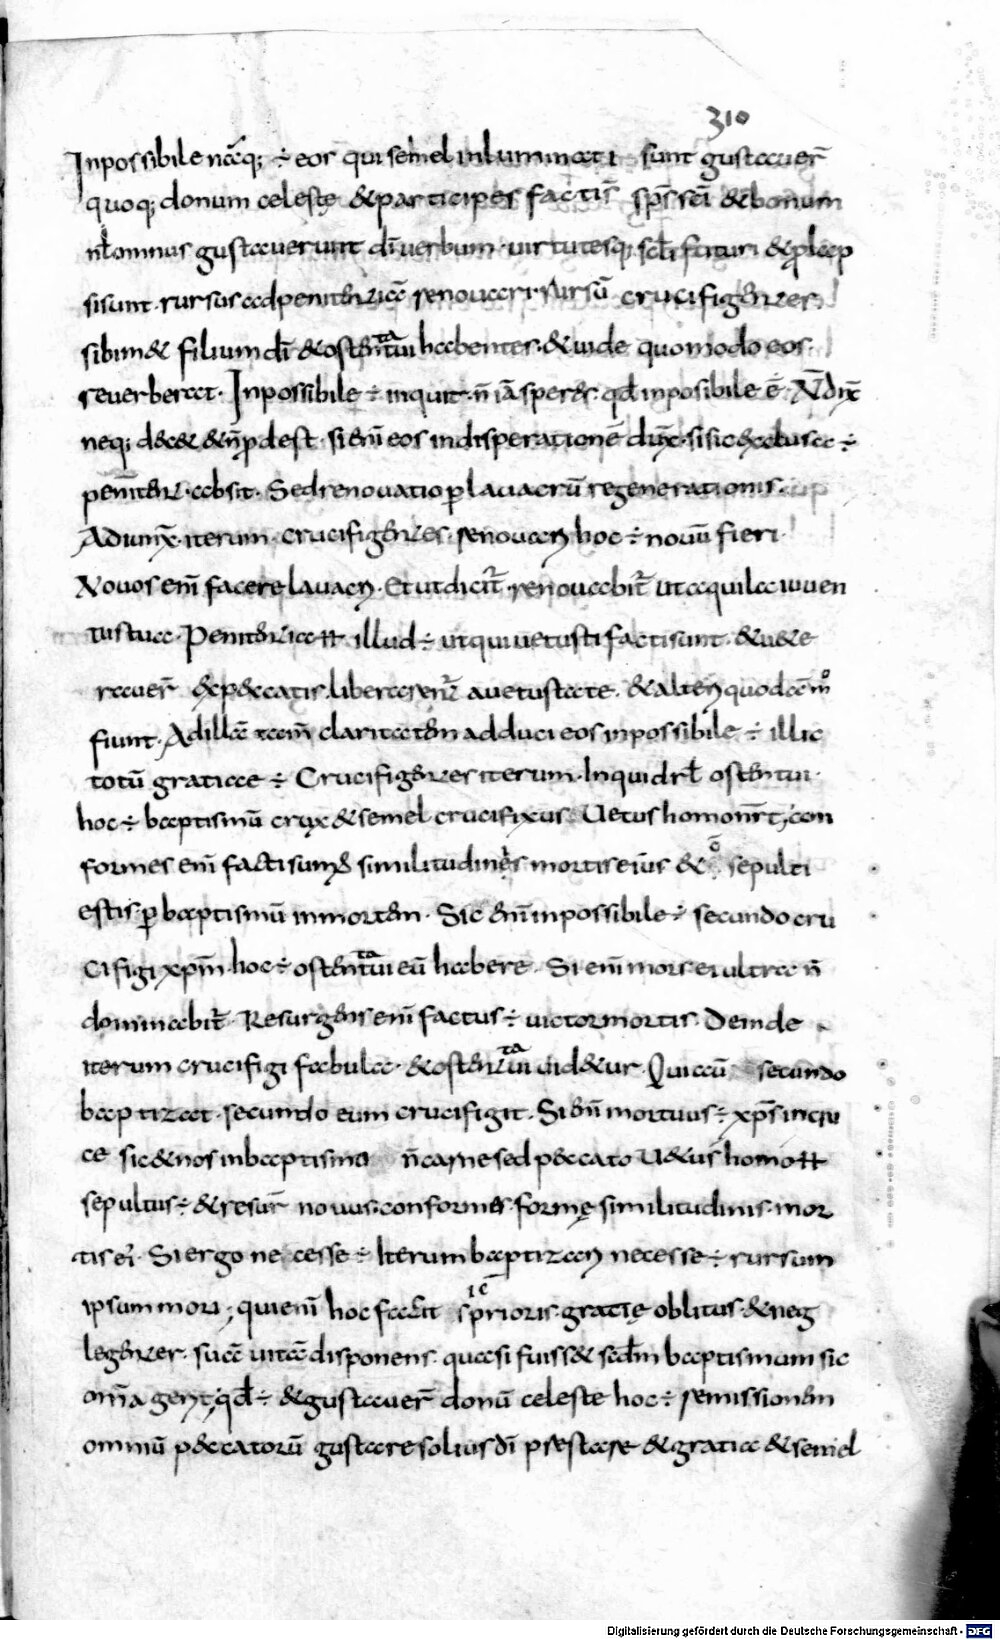 310
Inpossibile nāq; ÷ eos qui semel inluminati sunt gustauer̄
quoq; donum celeste & participes facti s̄ sp̄s sc̄i & bonum
nł omnus gustauerunt dī uerbum · uirtutesq; scłi futuri & plap
si sunt · rursus ad penitentiā renouari · rursū crucifigentes
sibim& filium dī & ostentui habentes · & uide quomodo eos
reuerberat · Inpossibile ÷ inquit · n̄ iā speres · qd̄ inposibile ē · N̄ dix̄
neq; dec& & n̄ pdest · si enī eos in disperationē dux̄ · si sic excłusa ÷
penitent absit · Sed renouatio p̱ lauacrū regenerationis ·
Adiunx̄ · iterum · crucifigentes · renouar̄ hoc ÷ nouū fieri ·
Nouos enī facere lauacr̄ · Et ut dicit̄ · renouabit̄ ut aquila iuuen
tus tua · Penitentia ħ illud ÷ ut qui uetusti facti sunt · & uete
rauer̄ ex peccatis · liberarent̄ a uetustate · & alter̄ quodam̊
fiunt · Ad illā tam̄ claritatem adduci eos inpossibile ÷ illic
totū gratiae ÷ Crucifigentes iterum · Inquid rł ostentui ·
hoc ÷ baptismū crux & semel crucifixus Uetus homo nr̄ t; con
formes enī facti sum; similitudines mortis eius & ō sepulti
estis · p̱ baptismū in mortem · Sic enī inpossibile ÷ secundo cru
cifigi xp̄m · hoc ÷ ostenta tui eū habere · Si enī mors ei ultra n̄
dominabit̄ · Resurgens enī factus ÷ uictor mortis · Deinde
iterum crucifigi fabula · & ostenta tui uid&ur · Qui eū secundo
baptizat · secundo eum crucifigit · Si enī mortuus ÷ xp̄s in cru
ce sic & nos in baptismo n̄ carne sed peccato U&us homo ħ
sepultus ÷ & resur̄ nouus · conformes formę similitudinis · mor
tis eī · Si ergo ne cesse ÷ Iterum baptizar̄ necesse ÷ rursum
ipsum mori ; qui enī hoc facit is prioris · gratię oblitus · & neg
legenter · suā uitā disponens · quasi fuiss& scd̄m baptismum sic
om̄a ger̄t; qd̄ ÷ & gustauer̄ donū celeste hoc ÷ remissionem
omniū peccatorū gustare solius dī prestare & gratia & semel
Digitalisierung gefördert durch die Deutsche Forschungsgemeinschaft - DFG